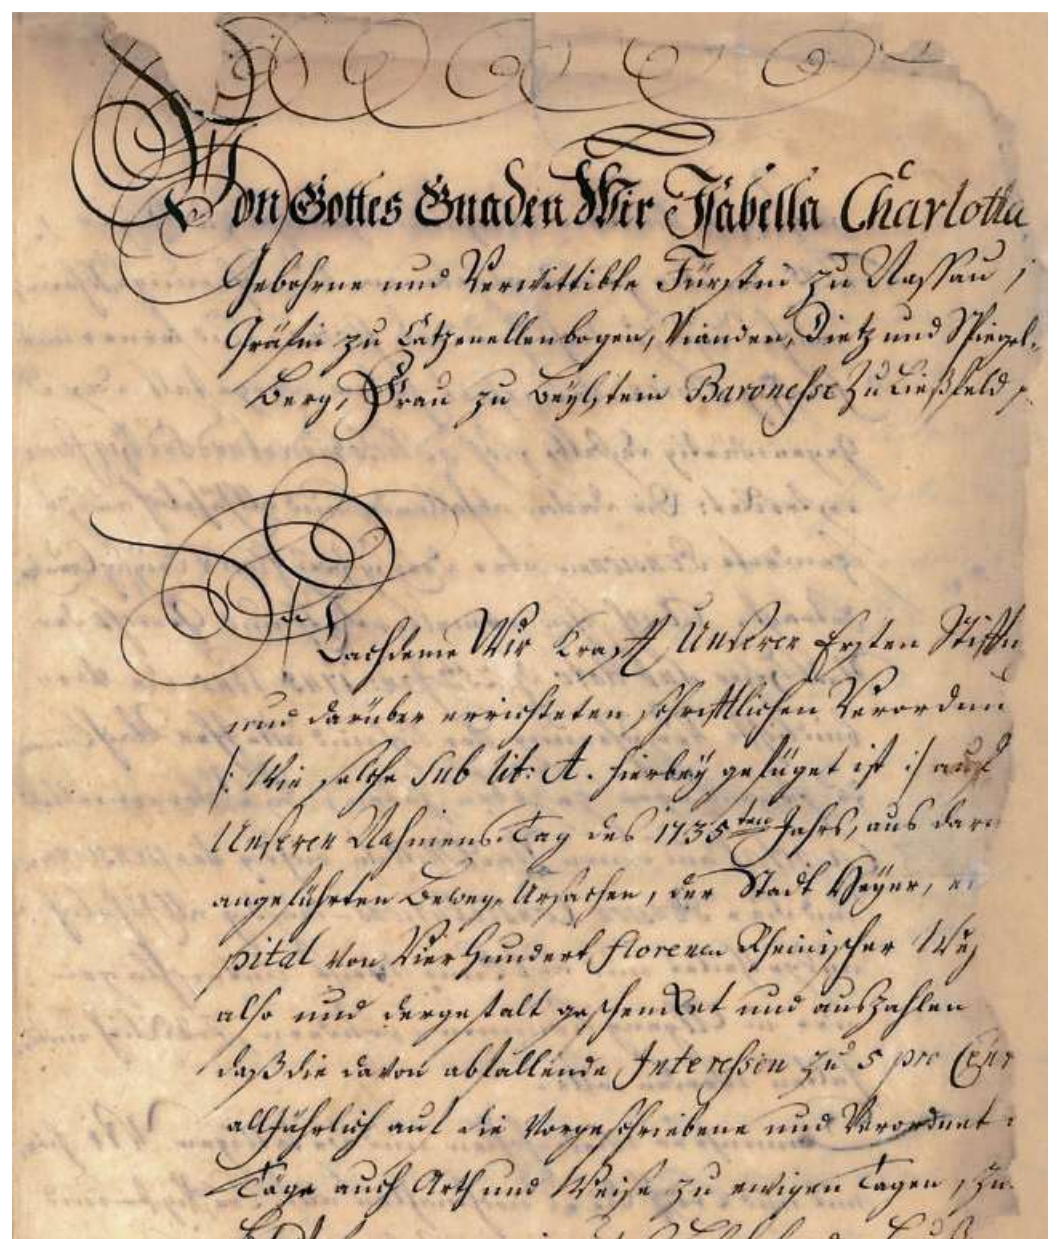 Von Gottes Gnaden Wir Isabella Charlotta
Gebohrne und Verwittibte Fürstin zu Nassau,
Gräfin zu Catzenellenbogen, Vianden, Dietz und Spiegel-
Berg, Frau zu Beÿlstein Baronesse zu Ließfeld
Nachdeme Wir Krafft Unserer Ersten Stifftu
und darüber errichteten schrifftlichen Verordnu
/: Wie solche Sub lit: A. hierbeÿ gefüget ist :/ auf
Unseren Nahmens-Tag des 1735ten Jahrs, aus dari
angeführten Beweg-Ursachen, der Stadt
pital von Vier Hundert florenen Rheinischer
also und dergestalt geschencket und auszahlen
daß die davon abfallende Interessen zu 5 pro Cent
alljährlich auf die Vorgeschriebene und Verordnet
Täge auch Arth und Weise zu ewigen Tagen, zu